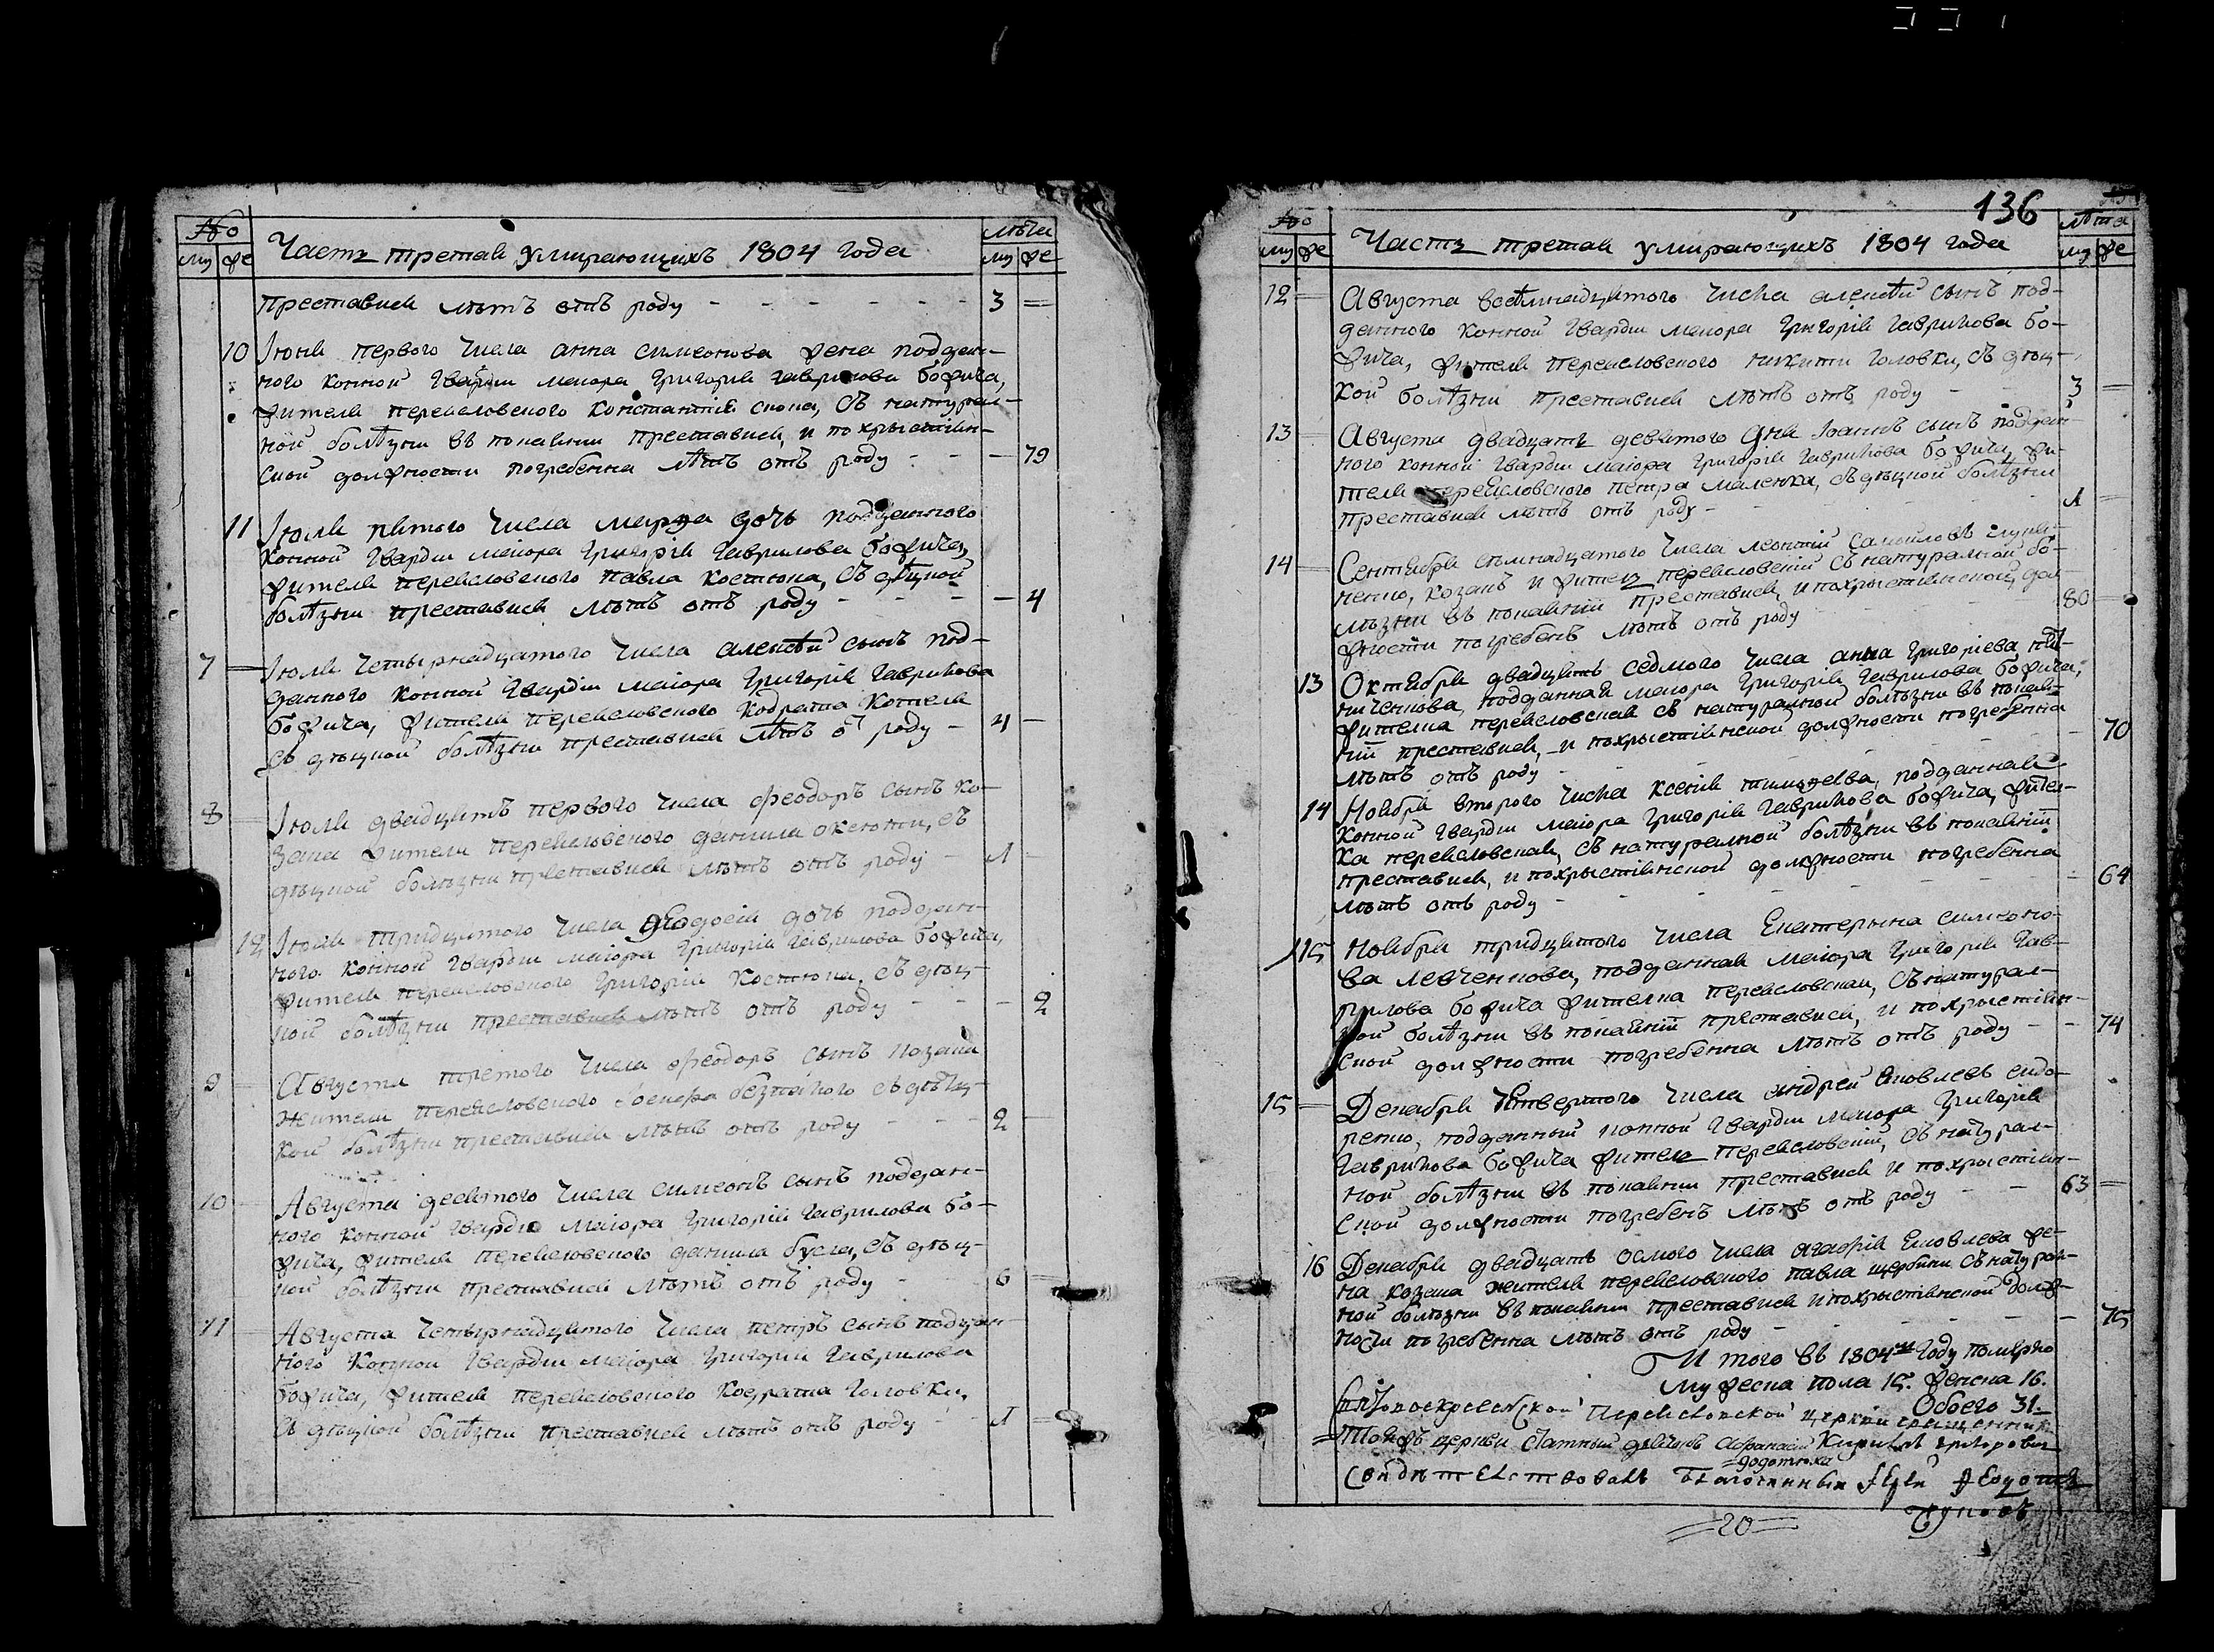 № лѣта
му же Часть третая умирающихъ 1804 года му же
преставися лѣтъ отъ роду - - - - - - 3 =
10 Іюня первого числа анна симеонова жена поддан-
ного конной гвардіи маіора григорія гаврилова божича,
жителя переясловского константія скока, съ натурал-
ной болѣзни въ покаяніи преставися, и похрыстіян-
ской должности погребенна лѣтъ отъ роду - - - 79
11 Іюля пятого числа марѳа дочь подданного
конной гвардіи маіора григорія гаврилова божича,
жителя переясловского павла костюка, съ дѣцкой
болѣзни преставися лѣтъ отъ роду - - - - 4
7 — Іюля четырнадцятого числа алексѣй сынъ под-
данного конной гвардіи маіора григорія гаврилова
божича, жителя переясловского кодрата
съ дѣцкой болѣзни преставися лѣтъ о роду - 4 -
8 = Іюля двадцять первого числа феодоръ сынъ ко-
зака жителя переясловского данила съ
дѣцкой болѣзни преставися лѣтъ отъ роду - 1 -
12 Іюля тридцятого числа феодосія дочь поддан-
ного конной гвардіи маіора григорія гаврилова божича,
жителя переясловского григорія костюка, съ дѣц-
кой болѣзни преставися лѣтъ отъ роду - - - 2
9 = Августа третого числа феодоръ сынъ козака
жителя переясловского съ дѣц-
кой болѣзни преставися лѣтъ отъ роду - - - 2 -
10 Августа десятого числа симеонъ сынъ поддан-
ного конной гвардіи маіора григорія гаврилова бо-
жича, жителя переясловского данила буса, съ дѣц-
кой болѣзни преставися лѣтъ отъ роду - 6 =
11 — Августа четырнадцятого числа петръ сынъ поддан-
ного конной гвардіи маіора григорія гаврилова
божича, жителя переясловского кодрата головки,
съ дѣцкой болѣзни преставися лѣтъ отъ роду - - 1 =
136
№ лѣта
му же Часть третая умирающихъ 1804 года му же
12 = Августа восѣмнадцятого числа алексѣй сынъ под-
данного конной гвардіи маіора григорія гаврилова бо-
жича, жителя переясловского никити головки, съ дѣц-
кой болѣзни преставися лѣтъ отъ роду - - 3 =
13 = Августа двадцять девятого дня іоаннъ сынъ поддан-
ного конной гвардіи маіора григорія гаврилова божича, жи-
теля переясловского петра маленка, съ дѣцкой болѣзни
преставися лѣтъ отъ роду - - - - - 1 =
14 = Сентября семнадцатого числа леонтій самойловъ
козакъ и житель переясловскій съ натуралной бо-
лѣзни въ покаяніи преставися, и похрыстіянской дол-
жности погребенъ лѣтъ отъ роду - - - 80 -
13 Октября двадцять седмого числа анна григоріева
подданная маіора григорія гаврилова божича,
жителка переясловская съ натуралной болѣзни въ покая-
ніи преставися, и похрыстіянской должности погребенна
лѣтъ отъ роду - - - - - - - 70
14 Ноября второго числа ксенія тимоѳеева, подданная
конной гвардіи маіора григорія гаврилова божича, жител-
ка переясловская, съ натуралной болѣзни въ покаяніи
преставися, и похрыстіянской должности погребенна
лѣтъ отъ роду - - - - - - 64
15 Ноября тридцятого числа Екатерына симеоно-
ва левченкова, подданная маіора григорія гав-
рилова божича жителка переясловская, съ натурал-
ной болѣзни въ покаяніи преставися, и похрыстіян-
ской должности погребенна лѣтъ отъ роду - - 74
15 = Декабря четвертого числа андрей яковлевъ сидо-
ренко, подданный конной гвардіи маіора григорія
гаврилова божича житель переясловскій, съ натурал-
ной болѣзни въ покаяніи преставися и похрыстіян-
ской должности погребенъ лѣтъ отъ роду - - 63 =
16 Декабря двадцать осмого числа агафія яковлева же-
на козака жителя переясловского павла щербини съ натурал-
ной болѣзни въ покаяніи преставися и похрыстіянской долж-
ности погребенна лѣтъ отъ роду - - - - - - 75
И того въ 1804м году помярло
мужеска пола 15. женска 16.
Обоего 31.
Переясловской церкви священникъ
Кирилъ григоровичъ
Тояжъ церкви статный дячокъ Афанасій
Свидѣтельствовалъ Благочинный Іерей Федотъ
=20=